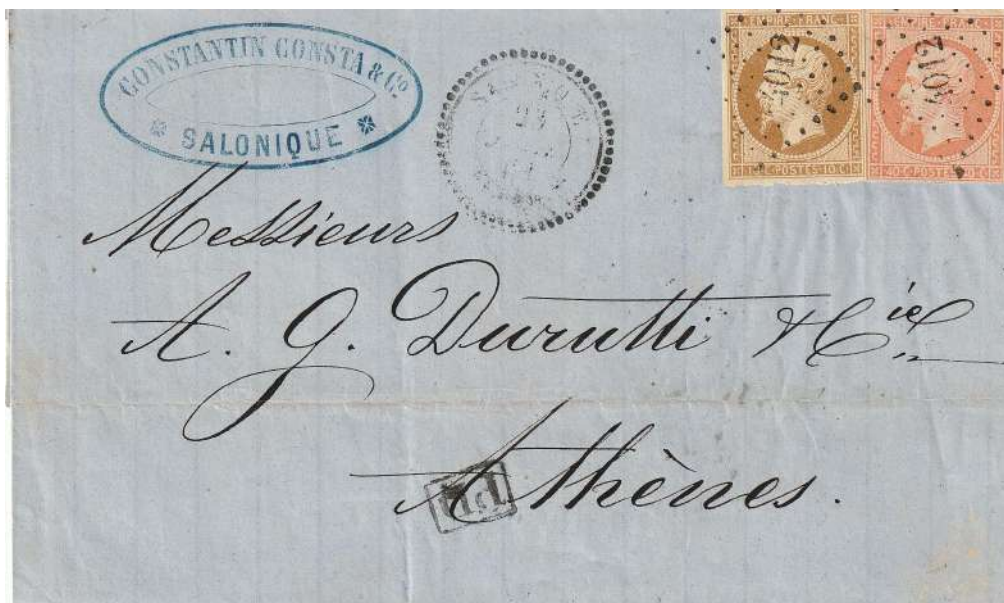 CONSTANTIN CONSTA & Cº
SALONIQUE
SALONIQUE
EMPIRE FRANC
4012
POSTES 10 C
EMPIRE FRANC
4012
40 C POSTES 40 C
Messieurs
A. G. Durutti & Cie
Athènes.
P.D.